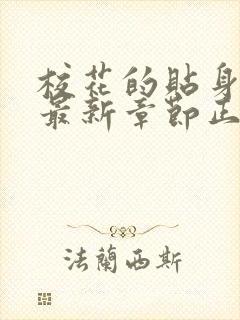 校花的貼身
最新章節正
法蘭西斯